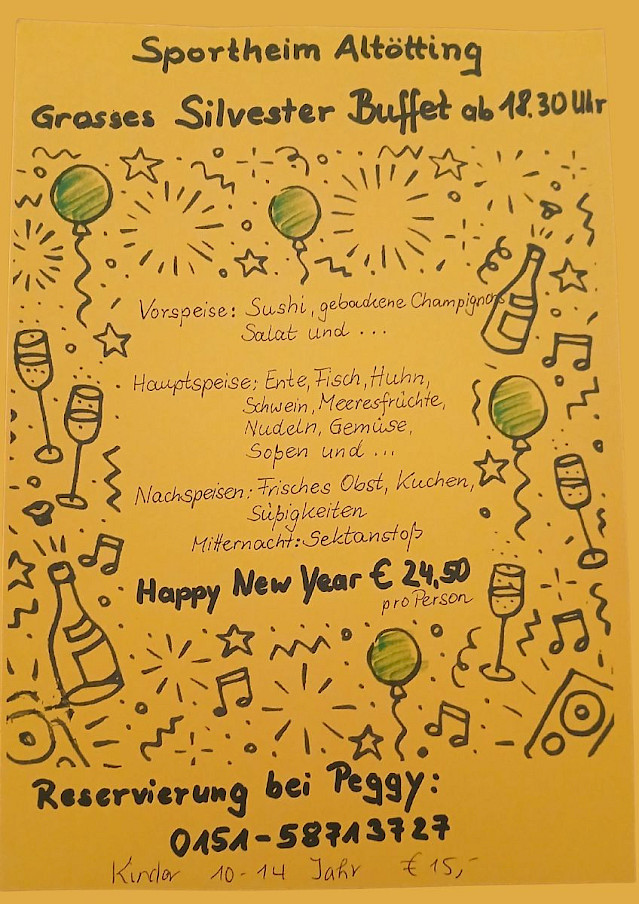 Sportheim Altötting
Grosses Silvester Buffet ab 18.30 Uhr
Vorspeise: Sushi, gebackene Champignons
Salat und ...
Hauptspeise: Ente, Fisch, Huhn,
Schwein, Meeresfrüchte,
Nudeln, Gemüse,
Soßen und ...
Nachspeisen: Frisches Obst, Kuchen,
Süßigkeiten
Mitternacht: Sektanstoß
Happy New Year € 24,50
pro Person
Reservierung bei Peggy:
0151-58713727
Kinder 10-14 Jahr € 15,-